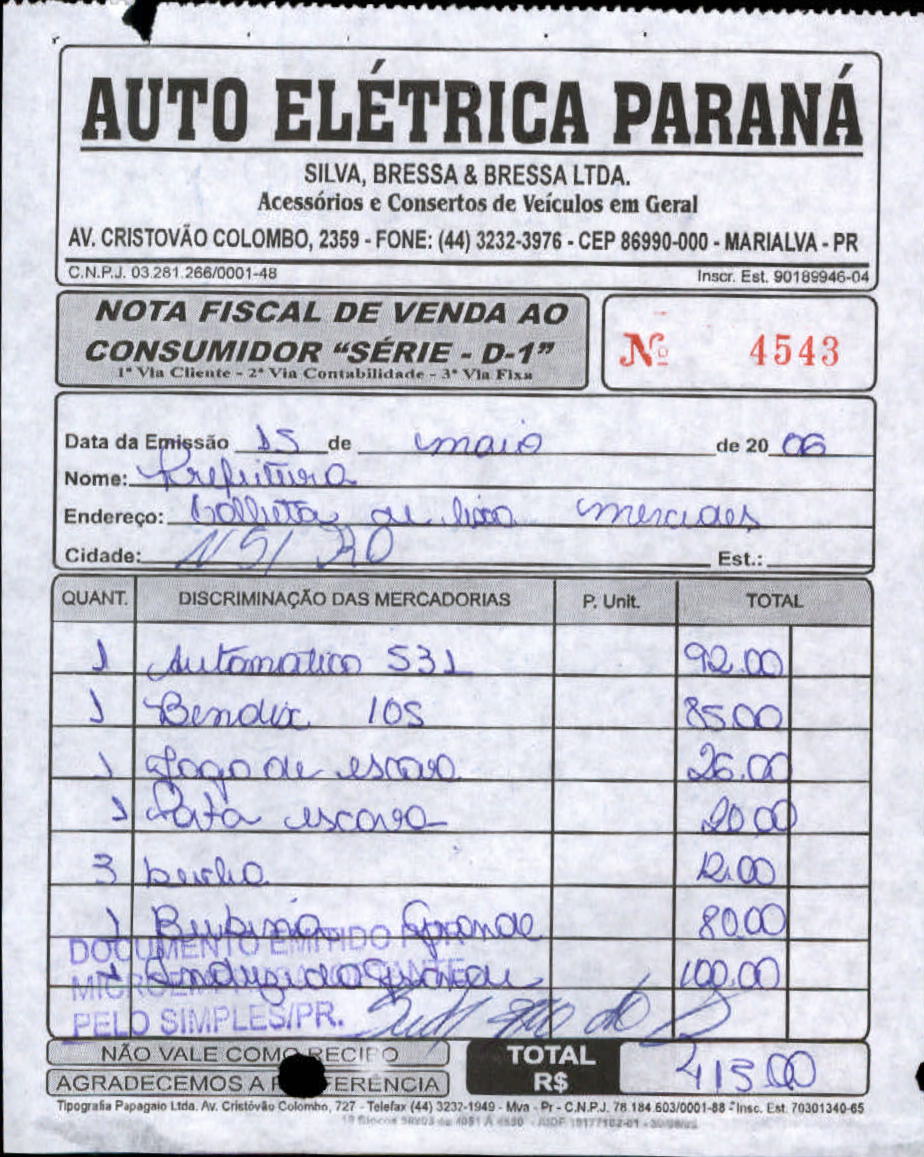 AUTO ELÉTRICA PARANÁ
SILVA, BRESSA & BRESSA LTDA.
Acessórios e Consertos de Veículos em Geral
AV. CRISTOVÃO COLOMBO, 2359 - FONE: (44) 3232-3976 - CEP 86990-000 - MARIALVA - PR
C.N.P.J. 03.281.266/0001-48 Inscr. Est. 90189946-04
NOTA FISCAL DE VENDA AO
CONSUMIDOR "SÉRIE - D-1"
1ª Via Cliente - 2ª Via Contabilidade - 3ª Via Fixa
Nº 4543
Data da Emissão 15 de maio de 20 06
Nome: Prefeitura
Endereço: de lixo mercedes
Cidade: Est.:
QUANT. DISCRIMINAÇÃO DAS MERCADORIAS P. Unit. TOTAL
1 Automatico 531 92.00
1 Bendix 105 85.00
1 Jogo de escova 26.00
1 Porta escova 20.00
3 bucha 12.00
1 Bubina Grande 80.00
1 100.00
DOCUMENTO EMITIDO
PELO SIMPLES/PR.
NÃO VALE COMO RECIBO
AGRADECEMOS A FERÊNCIA
TOTAL
R$ 415.00
Tipografia Papagaio Ltda. Av. Cristóvão Colombo, 727 - Telefax (44) 3232-1949 - Mva - Pr - C.N.P.J. 78.184.603/0001-88 - Insc. Est. 70301340-65